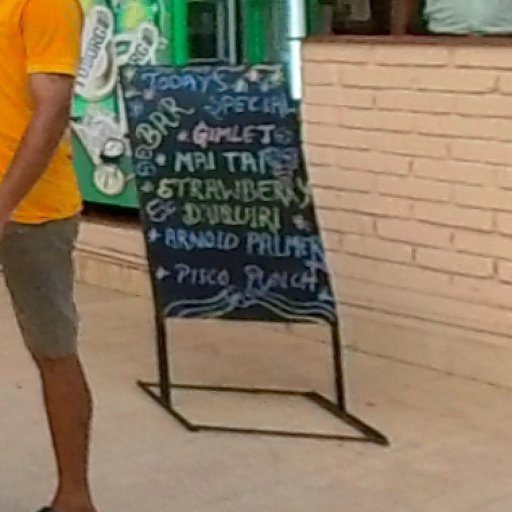 TODAYS
BAR SPECIAL
GIMLET
MAI TAI
STRAWBERRY
DIUQUIRI
ARNOLD PALMER
PISCO PUNCH
TUBORG